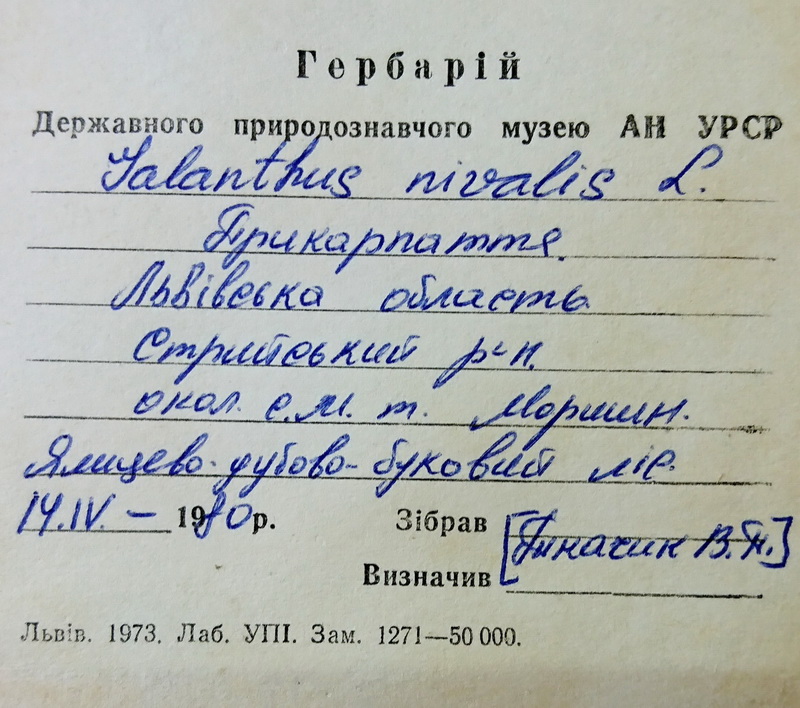 Гербарій
Державного природознавчого музею АН УРСР
Galanthus nivalis L.
Прикарпаття.
Львівська область
Стрийський р-н.
окол. с.м.т. Моршин.
Ялицево-дубово-буковий ліс.
14.IV. — 1980р. Зібрав
[Гиначик В.П.]
Визначив
Львів. 1973. Лаб. УПІ. Зам. 1271—50 000.